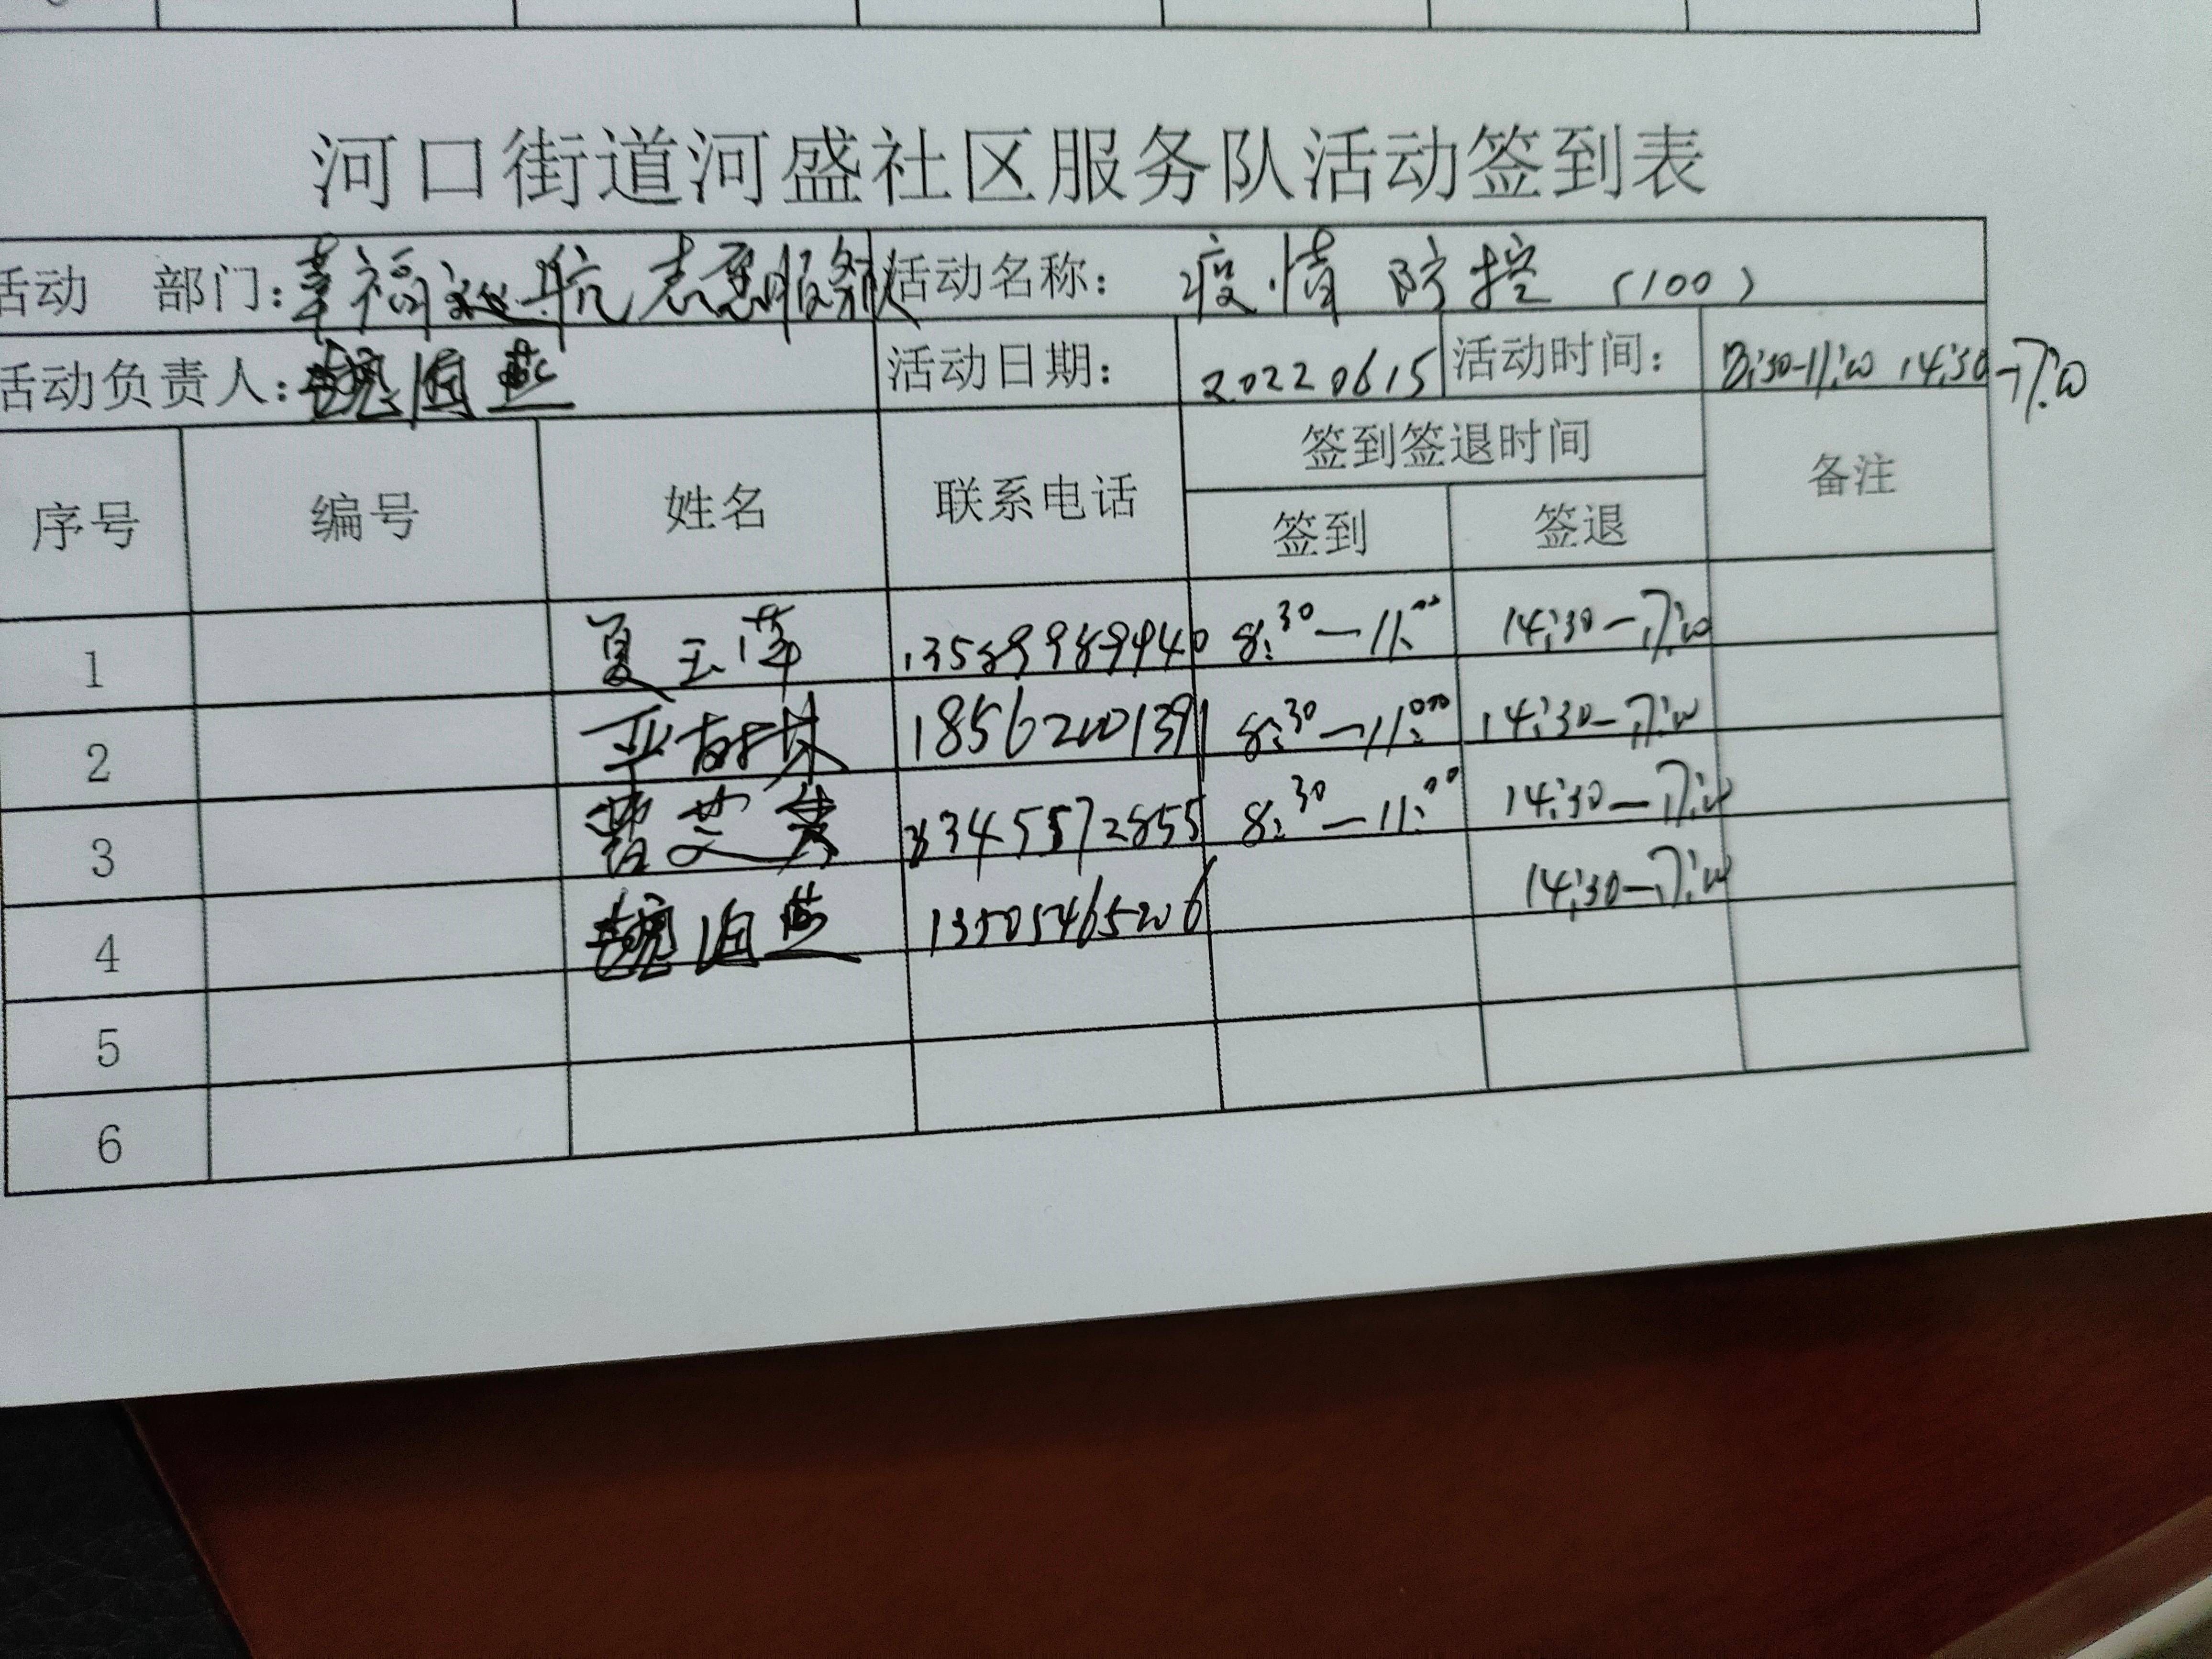 河口街道河盛社区服务队活动签到表
活动 部门：幸福 航志愿服务队 活动名称： 疫情防控（100）
活动负责人：魏海燕 活动日期： 20220615 活动时间： 8:30-11:00 14:30-17:00
序号 编号 姓名 联系电话 签到签退时间 备注
签到 签退
1 夏玉萍 13589989940 8:30-11:00 14:30-17:00
2 18562001391 8:30-11:00 14:30-17:00
3 13345572855 8:30-11:00 14:30-17:00
4 魏海燕 13505465206 14:30-17:00
5
6